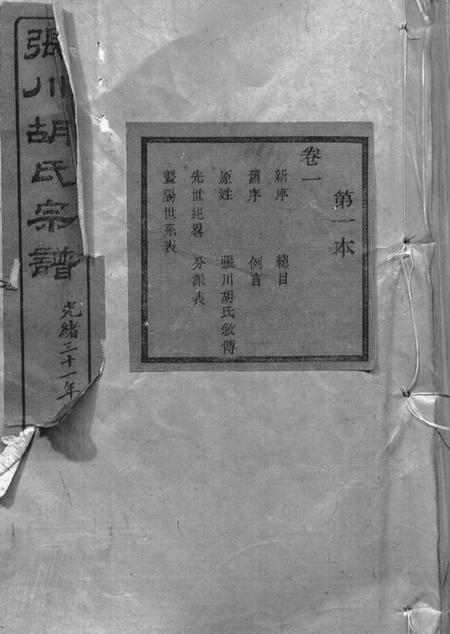 第一本
卷一
新序 總目
舊序 例言
原姓 張川胡氏敘傳
先世紀畧 分派表
暨陽世系表
張川胡氏宗譜
光緒三十一年